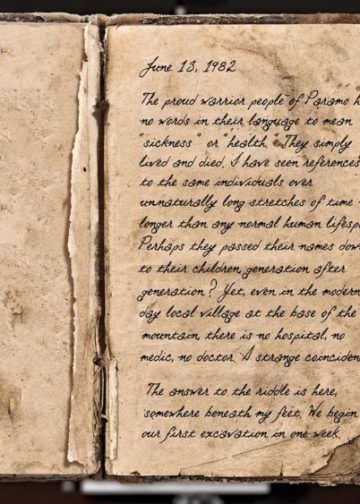 June 13, 1982
The proud warrior people of Paramo h
no words in their language to mean
"sickness" or "health." They simply
lived and died. I have seen references
to the same individuals over
unnaturally long stretches of time
longer than any normal human lifesp
Perhaps they passed their names dow
to their children generation after
generation? Yet, even in the modern
day local village at the base of the
mountain, there is no hospital, no
medic, no doctor. A strange coinciden
The answer to the riddle is here,
somewhere beneath my feet. We begin
our first excavation in one week.